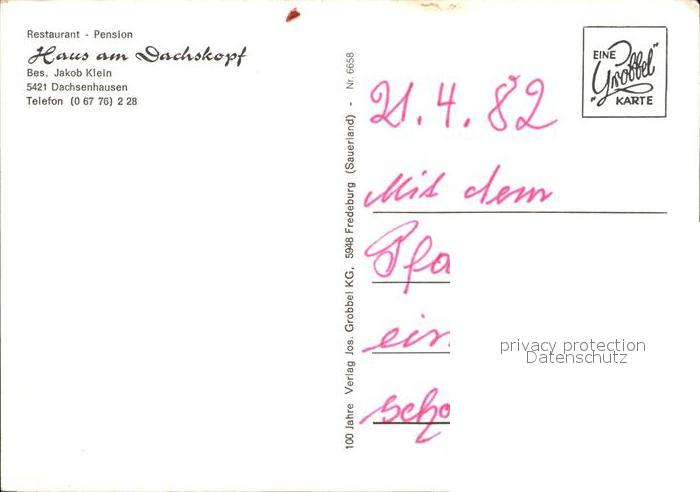 Restaurant - Pension
Haus am Dachskopf
Bes. Jakob Klein
5421 Dachsenhausen
Telefon (0 67 76) 2 28
100 Jahre Verlag Jos. Grobbel KG, 5948 Fredeburg (Sauerland) - Nr. 6658
EINE
"Grobbel"
"KARTE
21. 4. 82
Mit dem
Pfa
ein
scho
privacy protection
Datenschutz